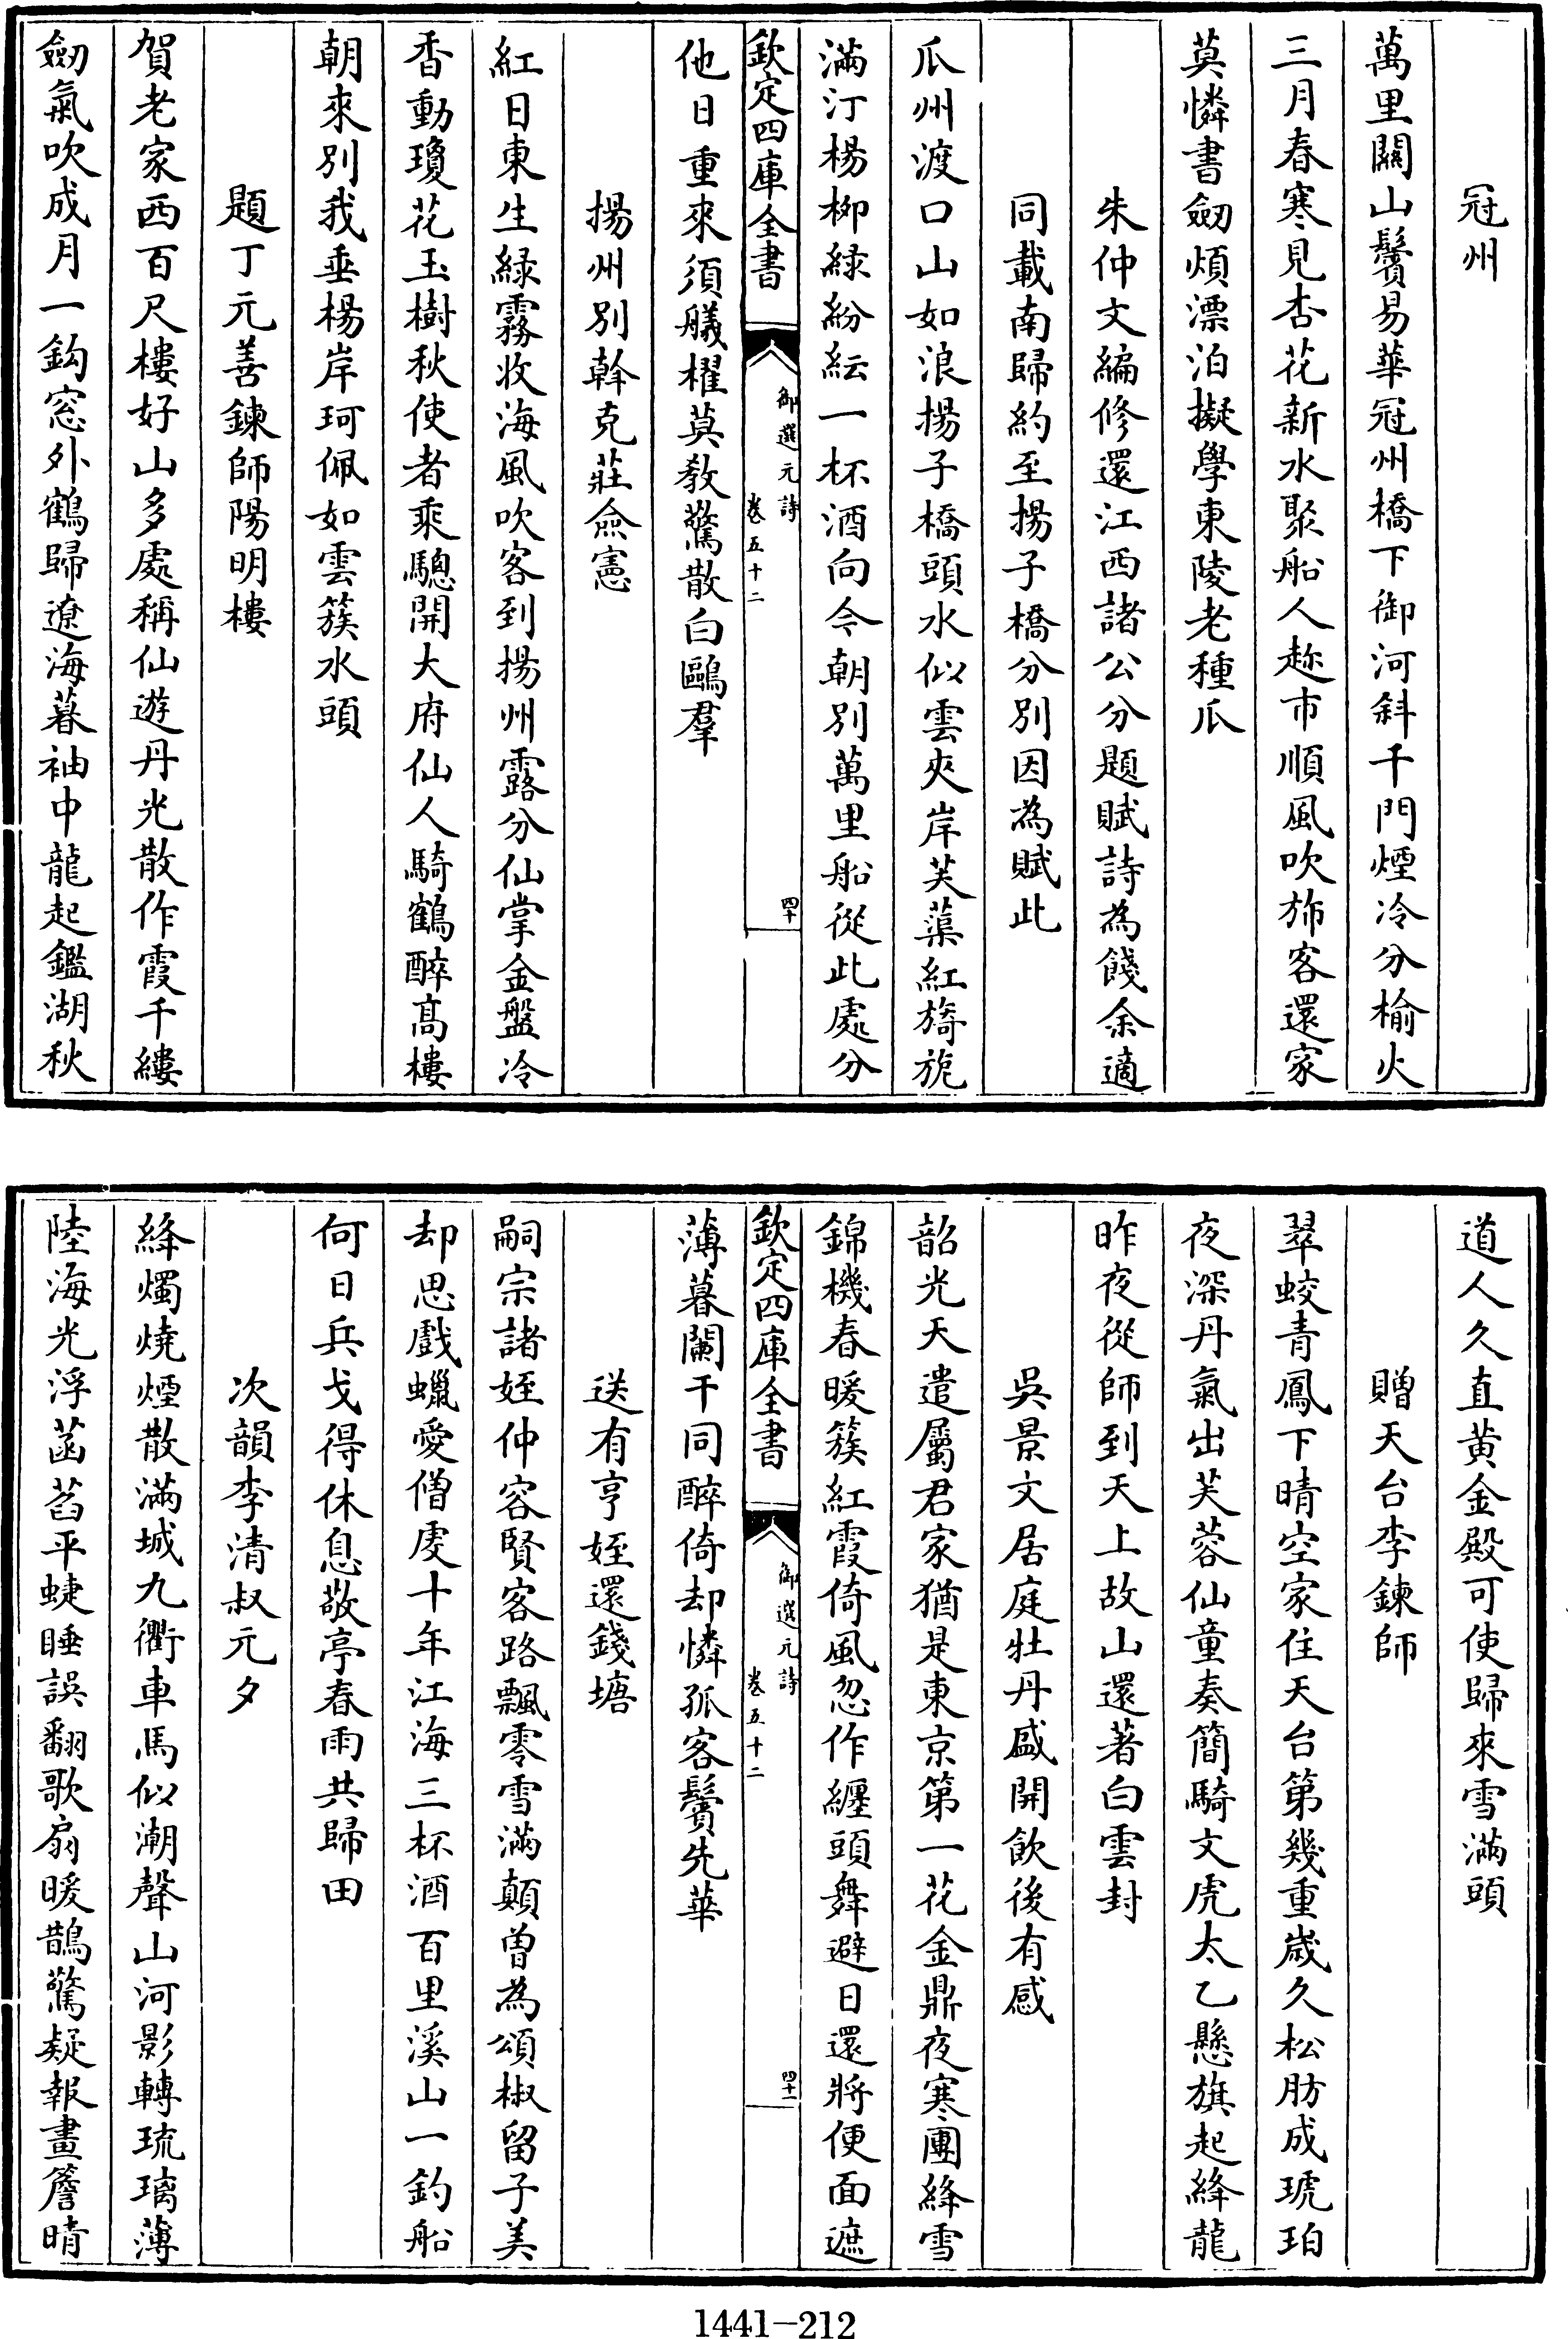 冠州
萬里關山鬢易華冠州橋下御河斜千門煙冷分榆火
三月春寒見杏花新水聚船人趂市順風吹斾客還家
莫憐書劒煩漂泊擬學東陵老種瓜
朱仲文編修還江西諸公分題賦詩為餞余適
同載南歸約至揚子橋分別因為賦此
瓜州渡口山如浪揚子橋頭水似雲夾岸芙蕖紅旖旎
滿汀楊柳緑紛紜一杯酒向今朝別萬里船從此處分
欽定四庫全書 御選元詩 卷五十二 四十
他日重來須艤櫂莫教驚散白鷗羣
揚州別幹克莊僉憲
紅日東生緑霧收海風吹客到揚州露分仙掌金盤冷
香動瓊花玉樹秋使者乘驄開大府仙人騎鶴醉髙樓
朝來別我垂楊岸珂佩如雲簇水頭
題丁元善鍊師陽明樓
賀老家西百尺樓好山多處稱仙遊丹光散作霞千縷
劒氣吹成月一鈎窓外鶴歸遼海暮袖中龍起鑑湖秋
道人久直黄金殿可使歸來雪滿頭
贈天台李鍊師
翠蛟青鳳下晴空家住天台第幾重嵗久松肪成琥珀
夜深丹氣出芙蓉仙童奏簡騎文虎太乙懸旗起絳龍
昨夜從師到天上故山還著白雲封
吳景文居庭牡丹盛開飲後有感
韶光天遣屬君家猶是東京第一花金鼎夜寒團絳雪
錦機春暖簇紅霞倚風忽作纏頭舞避日還將便面遮
欽定四庫全書 御選元詩 卷五十二 四十一
薄暮闌干同醉倚却憐孤客鬢先華
送有亨姪還錢塘
嗣宗諸姪仲容賢客路飄零雪滿顛曽為頌椒留子美
却思戲蠟愛僧虔十年江海三杯酒百里溪山一釣船
何日兵戈得休息敬亭春雨共歸田
次韻李清叔元夕
絳燭燒煙散滿城九衢車馬似潮聲山河影轉琉璃薄
陸海光浮菡萏平蜨睡誤翻歌扇暖鵲驚疑報畫簷晴
1441-212